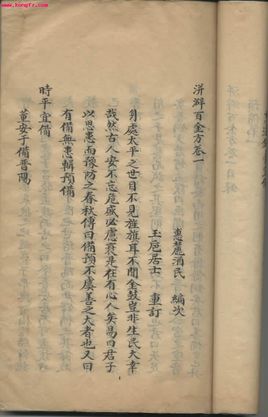 www.kongfz.com
洴澼百金方卷一
惠麓酒民 編次
玉扈居士 重訂
身處太平之世目不見旌旗耳不聞金鼓豈非生民大幸
哉然古人安不忘危盛必慮衰是在有心人矣易曰君子
以思患而豫防之春秋傳曰備預不虞善之大者也又曰
有備無患輯預備
時平宜備
董安于備晉陽